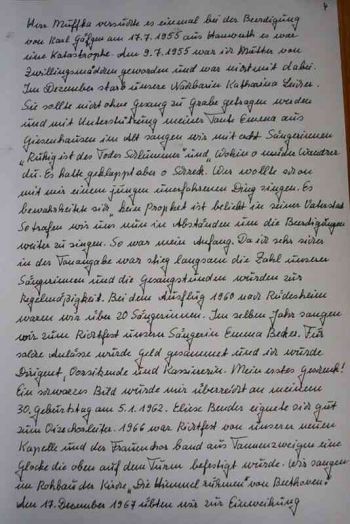 4
Herr Muffka versuchte es einmal bei der Beerdigung
von Karl Gäfgen am 17.7.1955 aus Hauworth es war
eine Katastrophe. Am 9.7.1955 war ich Mutter von
Zwillingsmädchen geworden und war nicht mit dabei.
Im Dezember starb unsere Nachbarin Katharina
Sie sollte nicht ohne Gesang zu Grabe getragen werden
und mit Unterstützung meiner Tante Emma aus
Giesenhausen im Alt sangen wir mit acht Sängerinnen
„Ruhig ist des Todes Schlummer" und „Wohin o müder Wandrer
du. Es hatte geklappt aber o Schreck. Wer wollte schon
mit mir einem jungen unerfahrenen Ding singen. Es
bewahrheitete sich „kein Prophet ist beliebt in seiner Vaterstadt
So trafen wir uns nun in Abständen um die Beerdigungen
weiter zu singen. So war mein Anfang. Da ich sehr sicher
in der Tonangabe war stieg langsam die Zahl unserer
Sängerinnen und die Gesangstunden wurden zur
Regelmäßigkeit. Bei dem Ausflug 1960 nach Rüdesheim
waren wir über 20 Sängerinnen. Im selben Jahr sangen
wir zum Richtfest unserer Sängerin Emma Becker. Für
solche Anlässe wurde Geld gesammelt und ich wurde
Dirigent, Vorsitzende und Kassiererin. Mein erstes Geschenk!
Ein schwarzes Bild wurde mir überreicht an meinem
30. Geburtstag am 5.1.1962. Eliese Bender eignete sich gut
zum Vizechorleiter. 1966 war Richtfest von unserer neuen
Kapelle und der Frauenchor band aus Tannenzweigen eine
Glocke die oben auf dem Turm befestigt wurde. Wir sangen
im Rohbau der Kirche „Die Himmel rühmen" von Beethoven"
Am 17. Dezember 1967 übten wir zur Einweihung